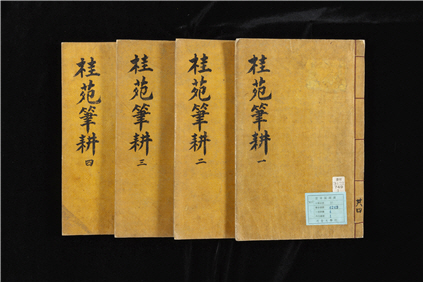 桂苑筆耕 一
桂苑筆耕 二
桂苑筆耕 三
桂苑筆耕 四
共四